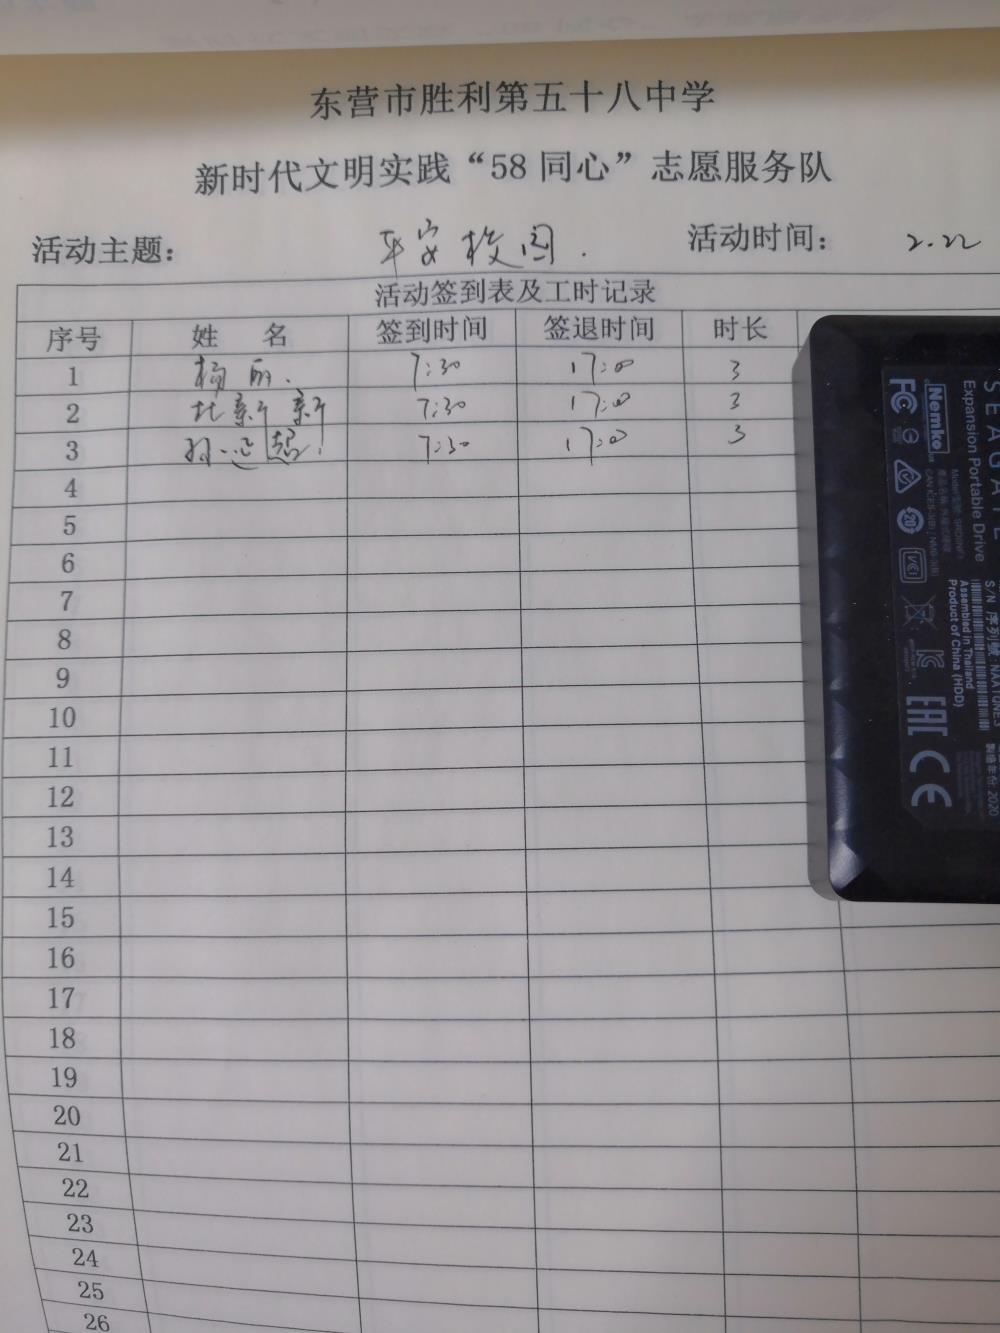 东营市胜利第五十八中学
新时代文明实践“58 同心”志愿服务队
活动主题： 平安校园. 活动时间： 2.22
活动签到表及工时记录
序号 姓 名 签到时间 签退时间 时长
1 杨丽. 7:30 17:00 3
2 新新 7:30 17:00 3
3 孙 7:30 17:00 3
4
5
6
7
8
9
10
11
12
13
14
15
16
17
18
19
20
21
22
23
24
25
26
SEAGATE
Expansion Portable Drive
S/N 序列號
Assembled in Thailand
Product of China (HDD)
製造年份: 2020
FC
Nemko
20
VCI
EAC
CE